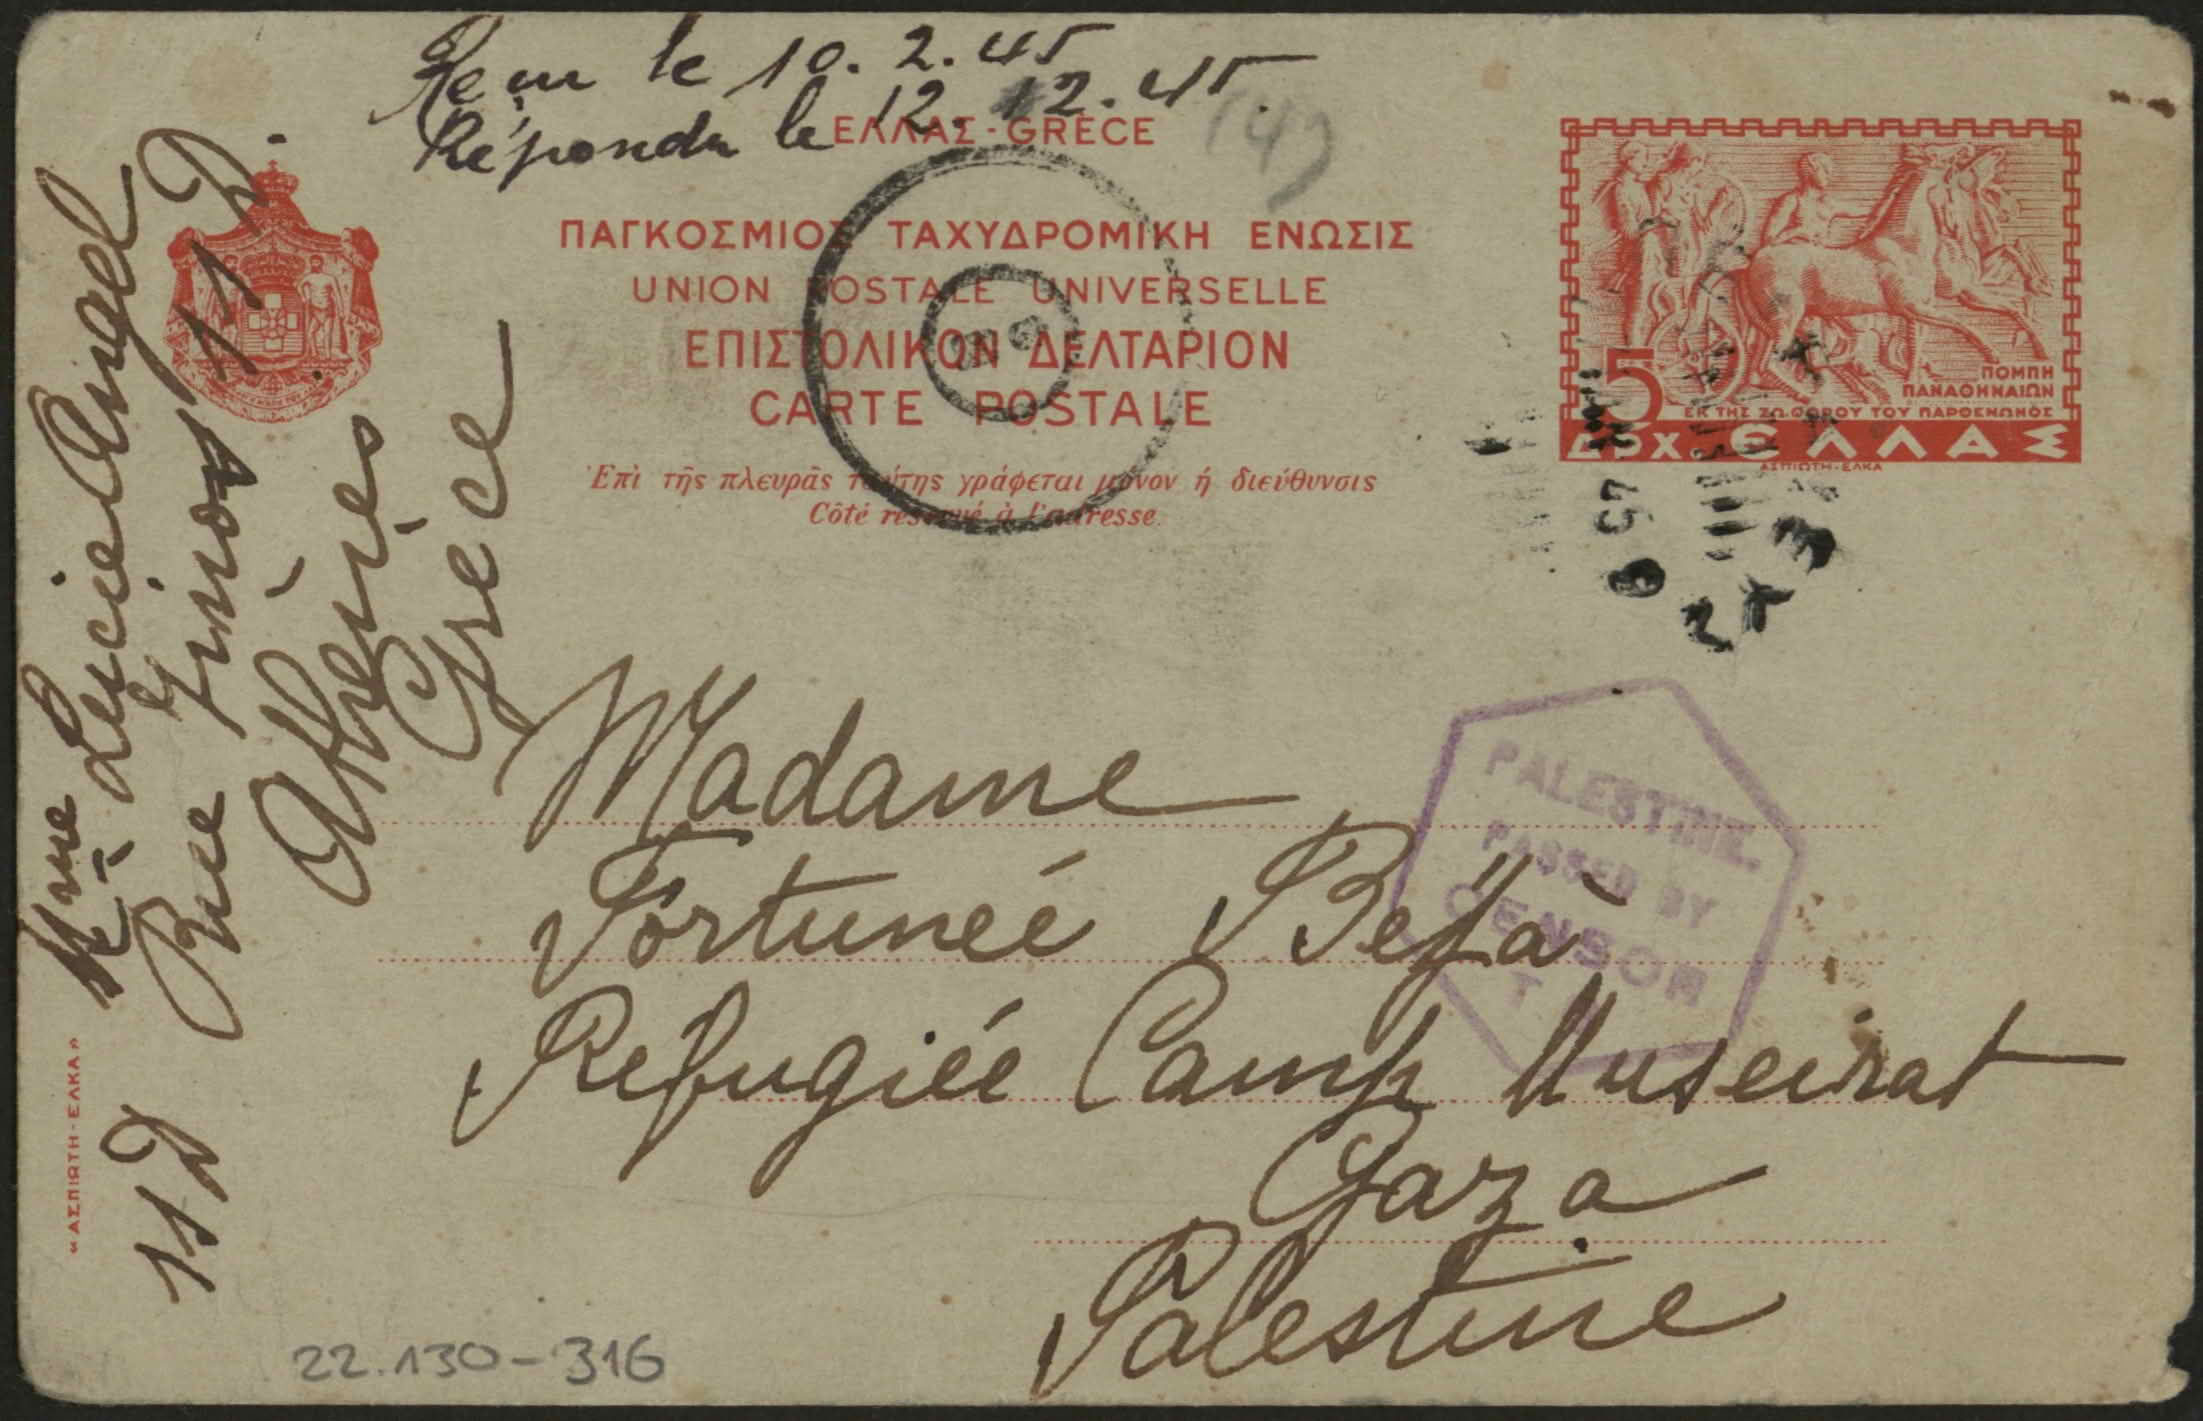 Reçu le 10. 2. 45
Répondu le 12. 12. 45.
(49)
ΕΛΛΑΣ - GRÈCE
ΠΑΓΚΟΣΜΙΟΣ ΤΑΧΥΔΡΟΜΙΚΗ ΕΝΩΣΙΣ
UNION POSTALE UNIVERSELLE
ΕΠΙΣΤΟΛΙΚΟΝ ΔΕΛΤΑΡΙΟΝ
CARTE POSTALE
Ἐπὶ τῆς πλευρᾶς ταύτης γράφεται μόνον ἡ διεύθυνσις
Côté réservé à l'adresse.
ΠΟΜΠΗ
ΠΑΝΑΘΗΝΑΙΩΝ
5
ΕΚ ΤΗΣ ΖΩΦΟΡΟΥ ΤΟΥ ΠΑΡΘΕΝΩΝΟΣ
ΔΡΧ. ΕΛΛΑΣ
ΑΣΠΙΩΤΗ-ΕΛΚΑ
Mme Lucie Angel
Rue 11D
Athènes
Grece
11D
Madame
Fortuneé Beja
Refugieé Camp Nuseirat
Gaza
Palestine
PALESTINE.
PASSED BY
CENSOR
T
«ΑΣΠΙΩΤΗ-ΕΛΚΑ»
22.130-316